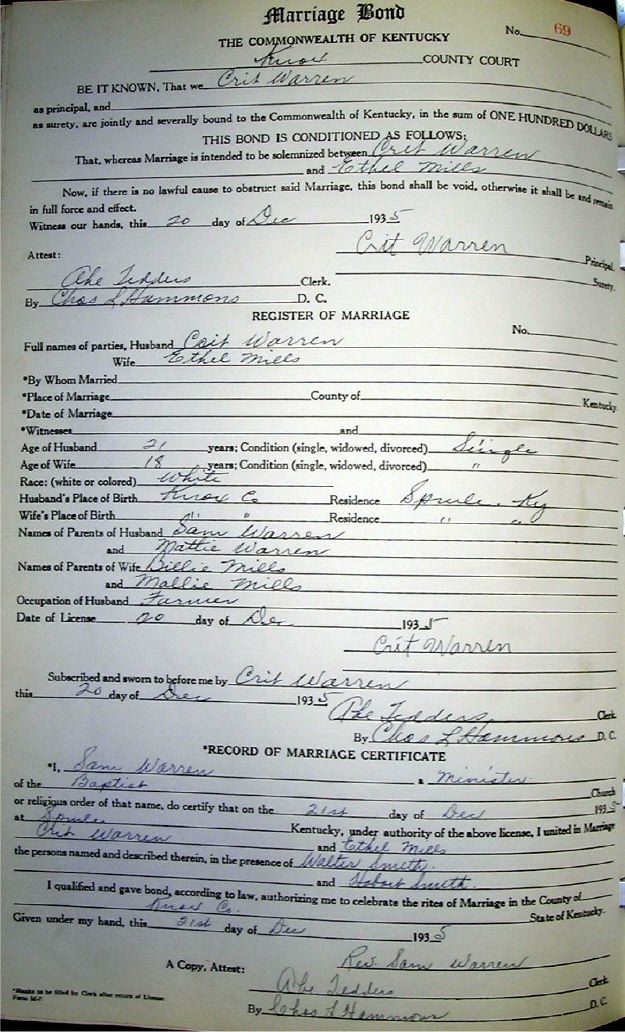 Marriage Bond
No. 69
THE COMMONWEALTH OF KENTUCKY
Knox COUNTY COURT
BE IT KNOWN, That we Crit Warren
as principal, and
as surety, are jointly and severally bound to the Commonwealth of Kentucky, in the sum of ONE HUNDRED DOLLARS
THIS BOND IS CONDITIONED AS FOLLOWS:
That, whereas Marriage is intended to be solemnized between Crit Warren
and Ethel Mills
Now, if there is no lawful cause to obstruct said Marriage, this bond shall be void, otherwise it shall be and remain
in full force and effect.
Witness our hands, this 20 day of Dec 1935
Crit Warren Principal.
Attest:
Surety.
Abe Tedders Clerk.
By Chas L Hammons D. C.
REGISTER OF MARRIAGE
No.
Full names of parties, Husband Crit Warren
Wife Ethel Mills
*By Whom Married
*Place of Marriage County of Kentucky.
*Date of Marriage
*Witnesses and
Age of Husband 21 years; Condition (single, widowed, divorced) Single
Age of Wife 18 years; Condition (single, widowed, divorced) "
Race: (white or colored) White
Husband's Place of Birth Knox Co Residence Sprule, Ky
Wife's Place of Birth " " Residence " "
Names of Parents of Husband Sam Warren
and Mattie Warren
Names of Parents of Wife Billie Mills
and Mollie Mills
Occupation of Husband Farmer
Date of License 20 day of Dec. 1935
Crit Warren
Subscribed and sworn to before me by Crit Warren
this 20 day of Dec 1935
Abe Tedders Clerk
By Chas L Hammons D. C.
*RECORD OF MARRIAGE CERTIFICATE
*I, Sam Warren a Minister
of the Baptist Church
or religious order of that name, do certify that on the 21st day of Dec 1935
at Sprule Kentucky, under authority of the above license, I united in Marriage
Crit Warren and Ethel Mills
the persons named and described therein, in the presence of Walter Smith
and Hobart Smith.
I qualified and gave bond, according to law, authorizing me to celebrate the rites of Marriage in the County of
Knox Co. State of Kentucky.
Given under my hand, this 21st day of Dec 1935
Rev. Sam Warren
A Copy, Attest: Abe Tedders Clerk
By Chas L Hammons D. C.
*Blanks to be filled by Clerk after return of License
Form M-7